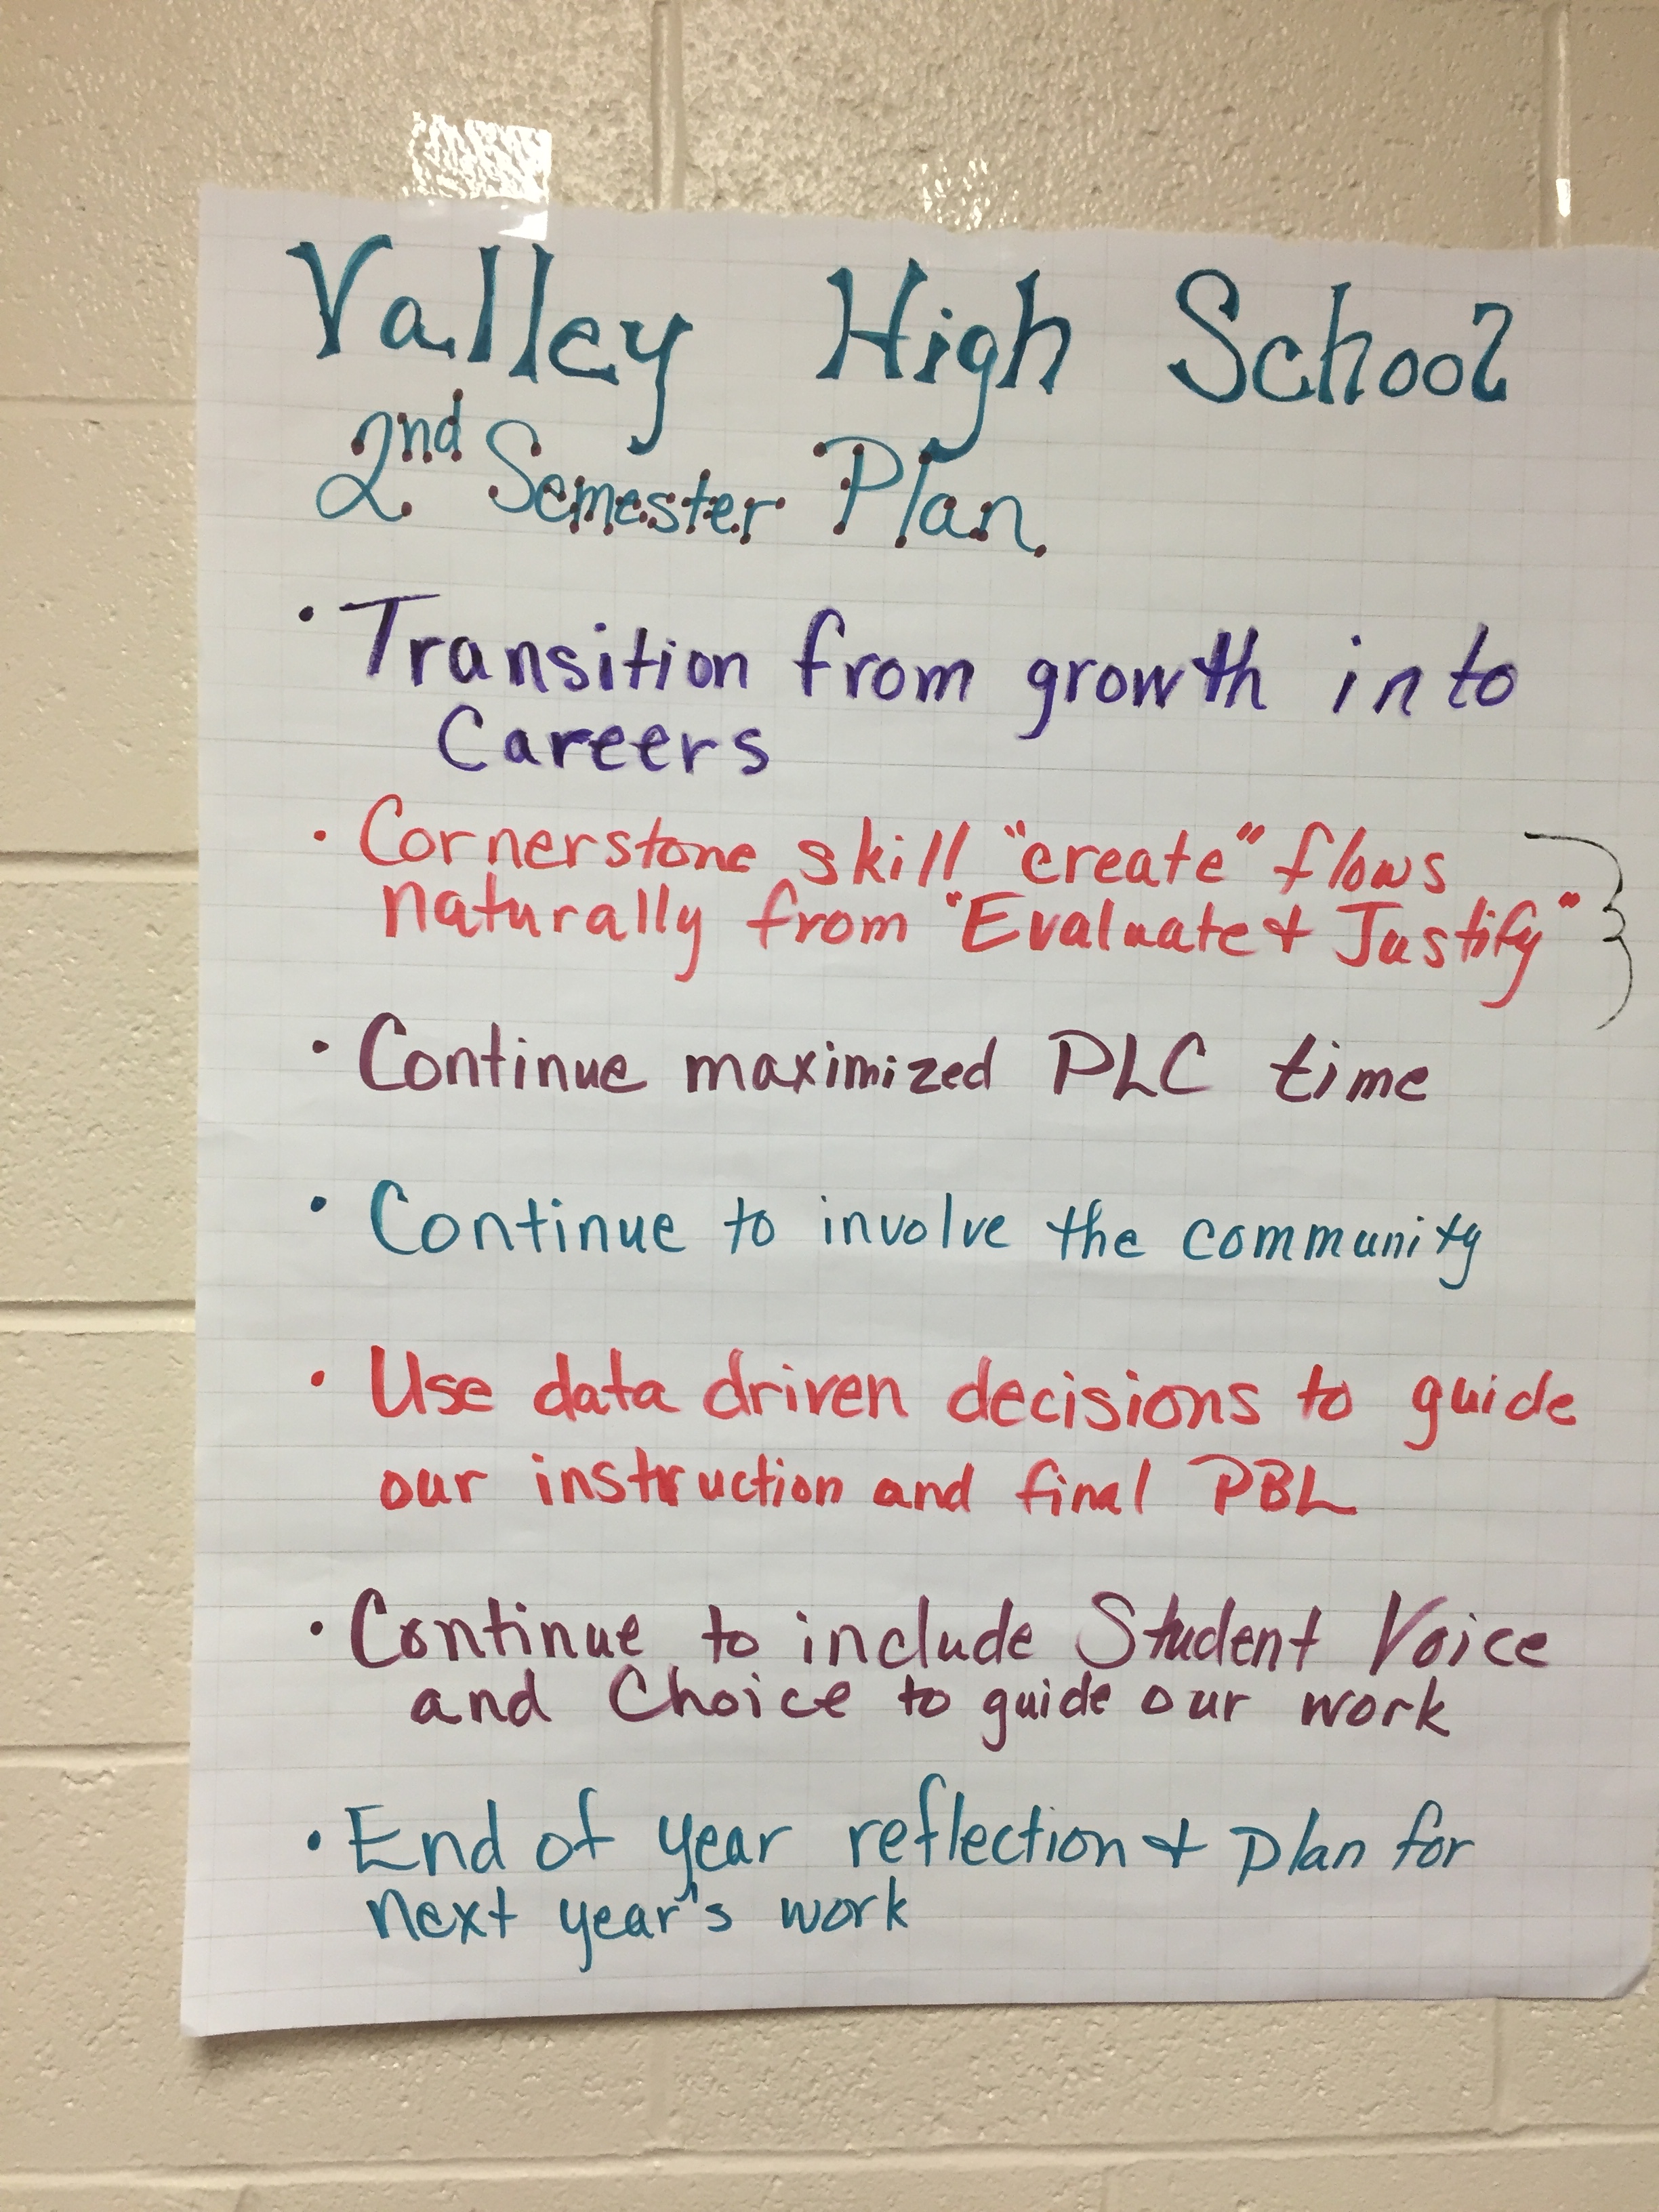 Valley High School
2nd Semester Plan
• Transition from growth into
Careers
• Cornerstone skill "create" flows
naturally from "Evaluate & Justify"
• Continue maximized PLC time
• Continue to involve the community
• Use data driven decisions to guide
our instruction and final PBL
• Continue to include Student Voice
and Choice to guide our work
• End of year reflection & plan for
next year's work